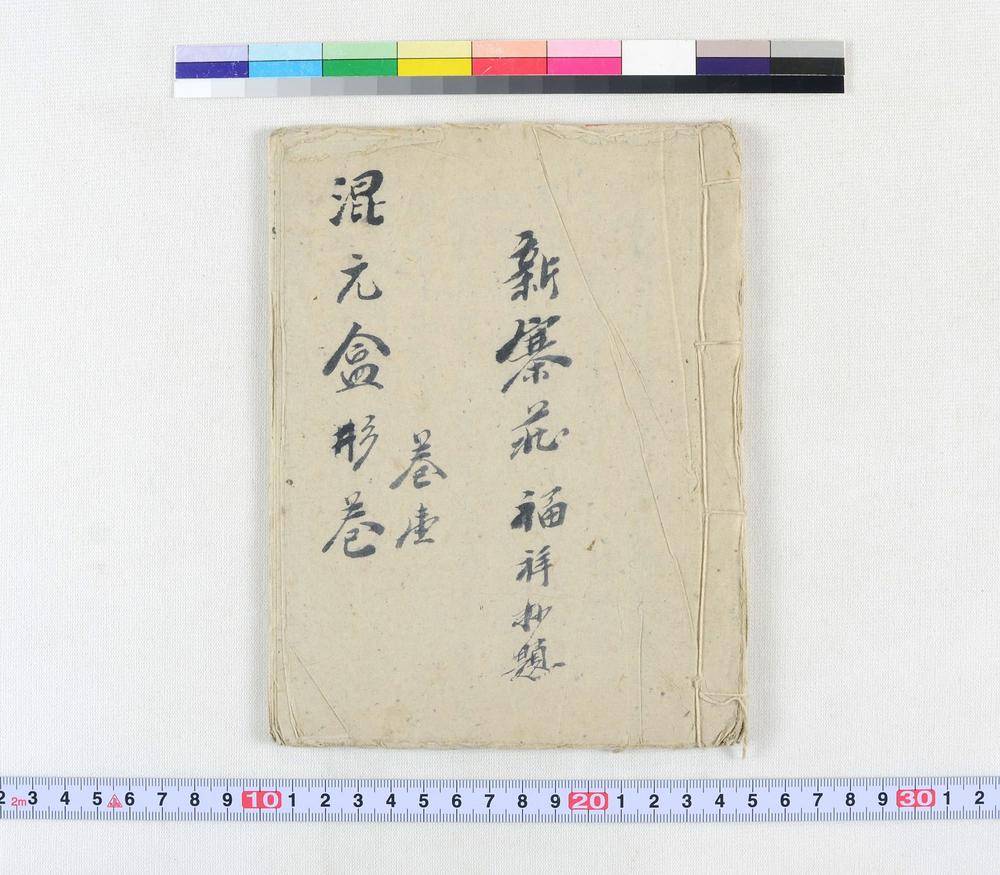 新寨莊福祥抄題
卷壹
混元盒形卷
2 2m 3 4 5 6 7 8 9 10 1 2 3 4 5 6 7 8 9 20 1 2 3 4 5 6 7 8 9 30 1 2